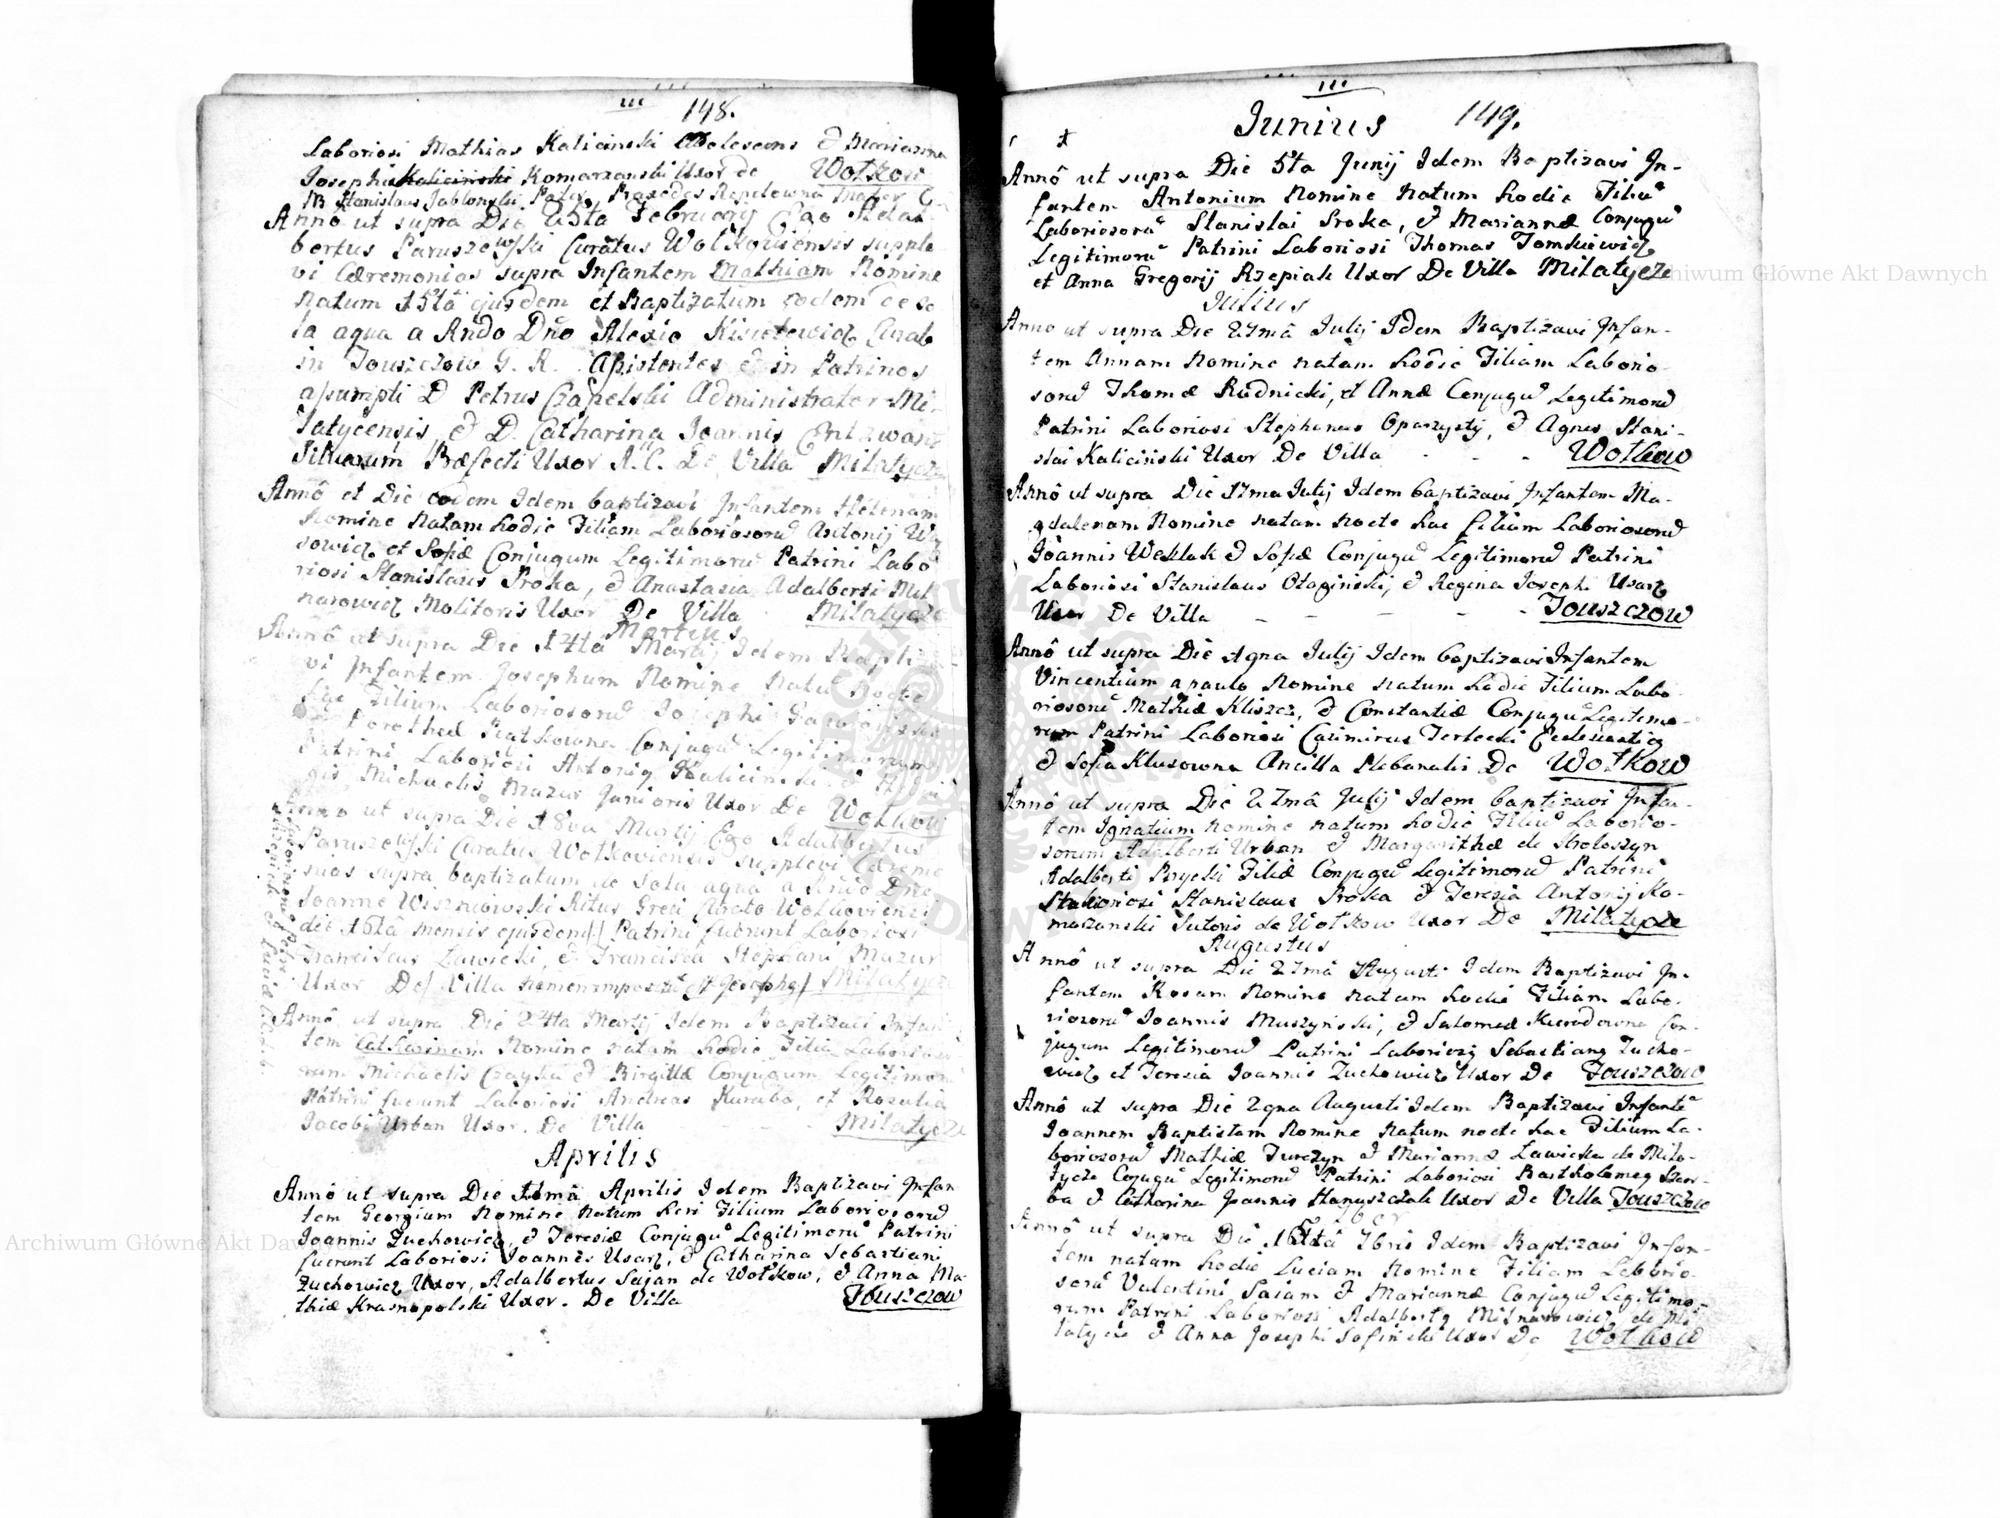 148.
Laboriosi Mathias Kalicinski Adolescens & Marianna
Josephi Kaliciński Komarzanski Uxor de Wołkow
NB Stanislaus Jabłonski Pater, Mater
Annô ut supra Die 25ta February Ego Adal-
bertus Paruszewski Curatus Wołkoviensis supple-
vi Cæremonias supra Infantem Mathiam Nomine
natum 15tâ ejusdem et Baptizatum eodem de so-
la aqua a Rndo Dño Alexio Curato
in Touszczow G. R. Assistentes & in Patrinos
assumpti D Petrus Czapelski Administrator Mi-
latycensis & D. Catharina Joannis
Præfecti Uxor R. C. De Villa Milatycze
Annô et Die eodem Idem baptizavi Infantem Helenam
Nomine Natam hodie Filiam Laboriosorũ Antonij
et Sofiæ Conjugum Legitimorũ Patrini Labo-
riosi Stanislaus Sroka, & Anastasia Adalberti Mil-
narowicz Molitoris Uxor De Villa Milatycze
Martius
Annô ut supra Die 14ta Martij Idem Bapti-
vi Infantem Josephum Nomine Natũ Nocte
hac Filium Laboriosorũ Josephi
Dorotheæ Ratkowna Conjugũ Legitimorum
Patrini Laboriosi Antonig Kaliciński &
Michaelis Mazur Junioris Uxor De Wołkow
Anno ut supra Die 18va Martij Ego Adalbertus
Paruszewski Curatus Wołkoviensis supplevi Cæremo-
nias supra baptizatum de sola aqua a Rndo Dño
Joanne Wiszniowski Ritus Græci Curato Wołkoviensi
die 16tâ mensis ejusdem Patrini fuerunt Laboriosi
Franciscus Ławicki, & Francisca Stephani Mazur
Uxor De Villa nomen impositũ est Josepho Milatycze
Annô ut supra Die 24ta Martij Idem Baptizavi Infan-
tem Catharinam Nomine natam hodie Filiã Laborioso-
rum Michaelis Czayka & Birgittæ Conjugum Legitimorũ
Patrini fuerunt Laboriosi Andreas Kuraba, et Rozalia
Jacobi Urban Uxor. De Villa Milatycze
Aprilis
Annô ut supra Die 1mâ Aprilis Idem Baptizavi Infan-
tem Georgium Nomine natum heri Filium Laboriosorũ
Joannis Zuchowicz, & Teresiæ Conjugũ Legitimorũ Patrini
fuerunt Laboriosi Joannes Usarz, & Catharina Sebastiani
Zuchowicz Uxor, Adalbertus Sajan de Wołkow, & Anna Ma-
thiæ Krasnopolski Uxor. De Villa Touszczow
Junius 149.
Annô ut supra Die 5ta Junij Idem Baptizavi In-
fantem Antonium Nomine Natum hodie Filiũ
Laboriosorũ Stanislai Sroka, & Mariannæ Conjugũ
Legitimorũ Patrini Laboriosi Thomas Tomkiewicz
et Anna Gregorij Rzepiak Uxor De Villa Milatycze
Julius
Anno ut supra Die 27mâ Julij Idem Baptizavi Infan-
tem Annam Nomine natam hodie Filiam Laborio-
sorũ Thomæ Rudnicki, & Annæ Conjugũ Legitimorũ
Patrini Laboriosi Stephanus Oparzysty, & Agnes Stani-
slai Kaliciński Uxor De Villa - - - Wołkow
Annô ut supra Die 17ma Julij Idem baptizavi Infantem Ma-
gdalenam Nomine natam nocte hac filiam Laboriosorũ
Joannis Weklak & Sofiæ Conjugũ Legitimorũ Patrini
Laboriosi Stanislaus Ołagiński, & Regina Josephi Usarz
Uxor De Villa - - - - Touszczow
Annô ut supra Die 19na Julij Idem baptizavi Infantem
Vincentium a paulo Nomine natum hodie Filium Labo-
riosorũ Mathiæ Kliszcz, & Constantiæ Conjugũ Legitimo-
rum Patrini Laboriosi Casimirus Terlecki Ecclesiastig
& Sofia Klusowna Ancilla Plebanalis De Wołkow
Annô ut supra Die 27mâ Julij Idem baptizavi Infan-
tem Ignatium Nomine natum hodie Filiũ Laborio-
sorum Adalberti Urban & Margarithæ de Chołoszyn
Adalberti Brycki Filiæ Conjugũ Legitimorũ Patrini
Laboriosi Stanislaus Sroka & Teresia Antonij Ko-
marzanski Sutoris de Wołkow Uxor De Milatycze
Augustus
Annô ut supra Die 27mâ Augusti Idem Baptizavi In-
fantem Rosam Nomine natam hodie Filiam Labo-
riosorũ Joannis Muszyński, & Salomeæ Con-
jugum Legitimorũ Patrini Laboriosi Sebastiang Zucho-
wicz et Teresia Joannis Zuchowicz Uxor De Touszczow
Annô ut supra Die 29na Augusti Idem Baptizavi Infantẽ
Joannem Baptistam Nomine Natum nocte hac Filium La-
boriosorũ Mathiæ Turczyn & Mariannæ Ławicka de Mila-
tycze Conjugũ Legitimorũ Patrini Laboriosi Bartholomeg
& Catharina Joannis Uxor De Villa Touszczow
Annô ut supra Die 15tâ 7bris Idem Baptizavi Infan-
tem natam hodie Luciam Nomine Filiam Laborio-
sorũ Valentini Saian & Mariannæ Conjugũ Legitimo-
rum Patrini Laboriosi Adalbertg Milnarowicz de Mi-
latycze & Anna Josephi Sofiński Uxor De Wołkow
Archiwum Główne Akt Dawnych
Archiwum Główne Akt Dawnych